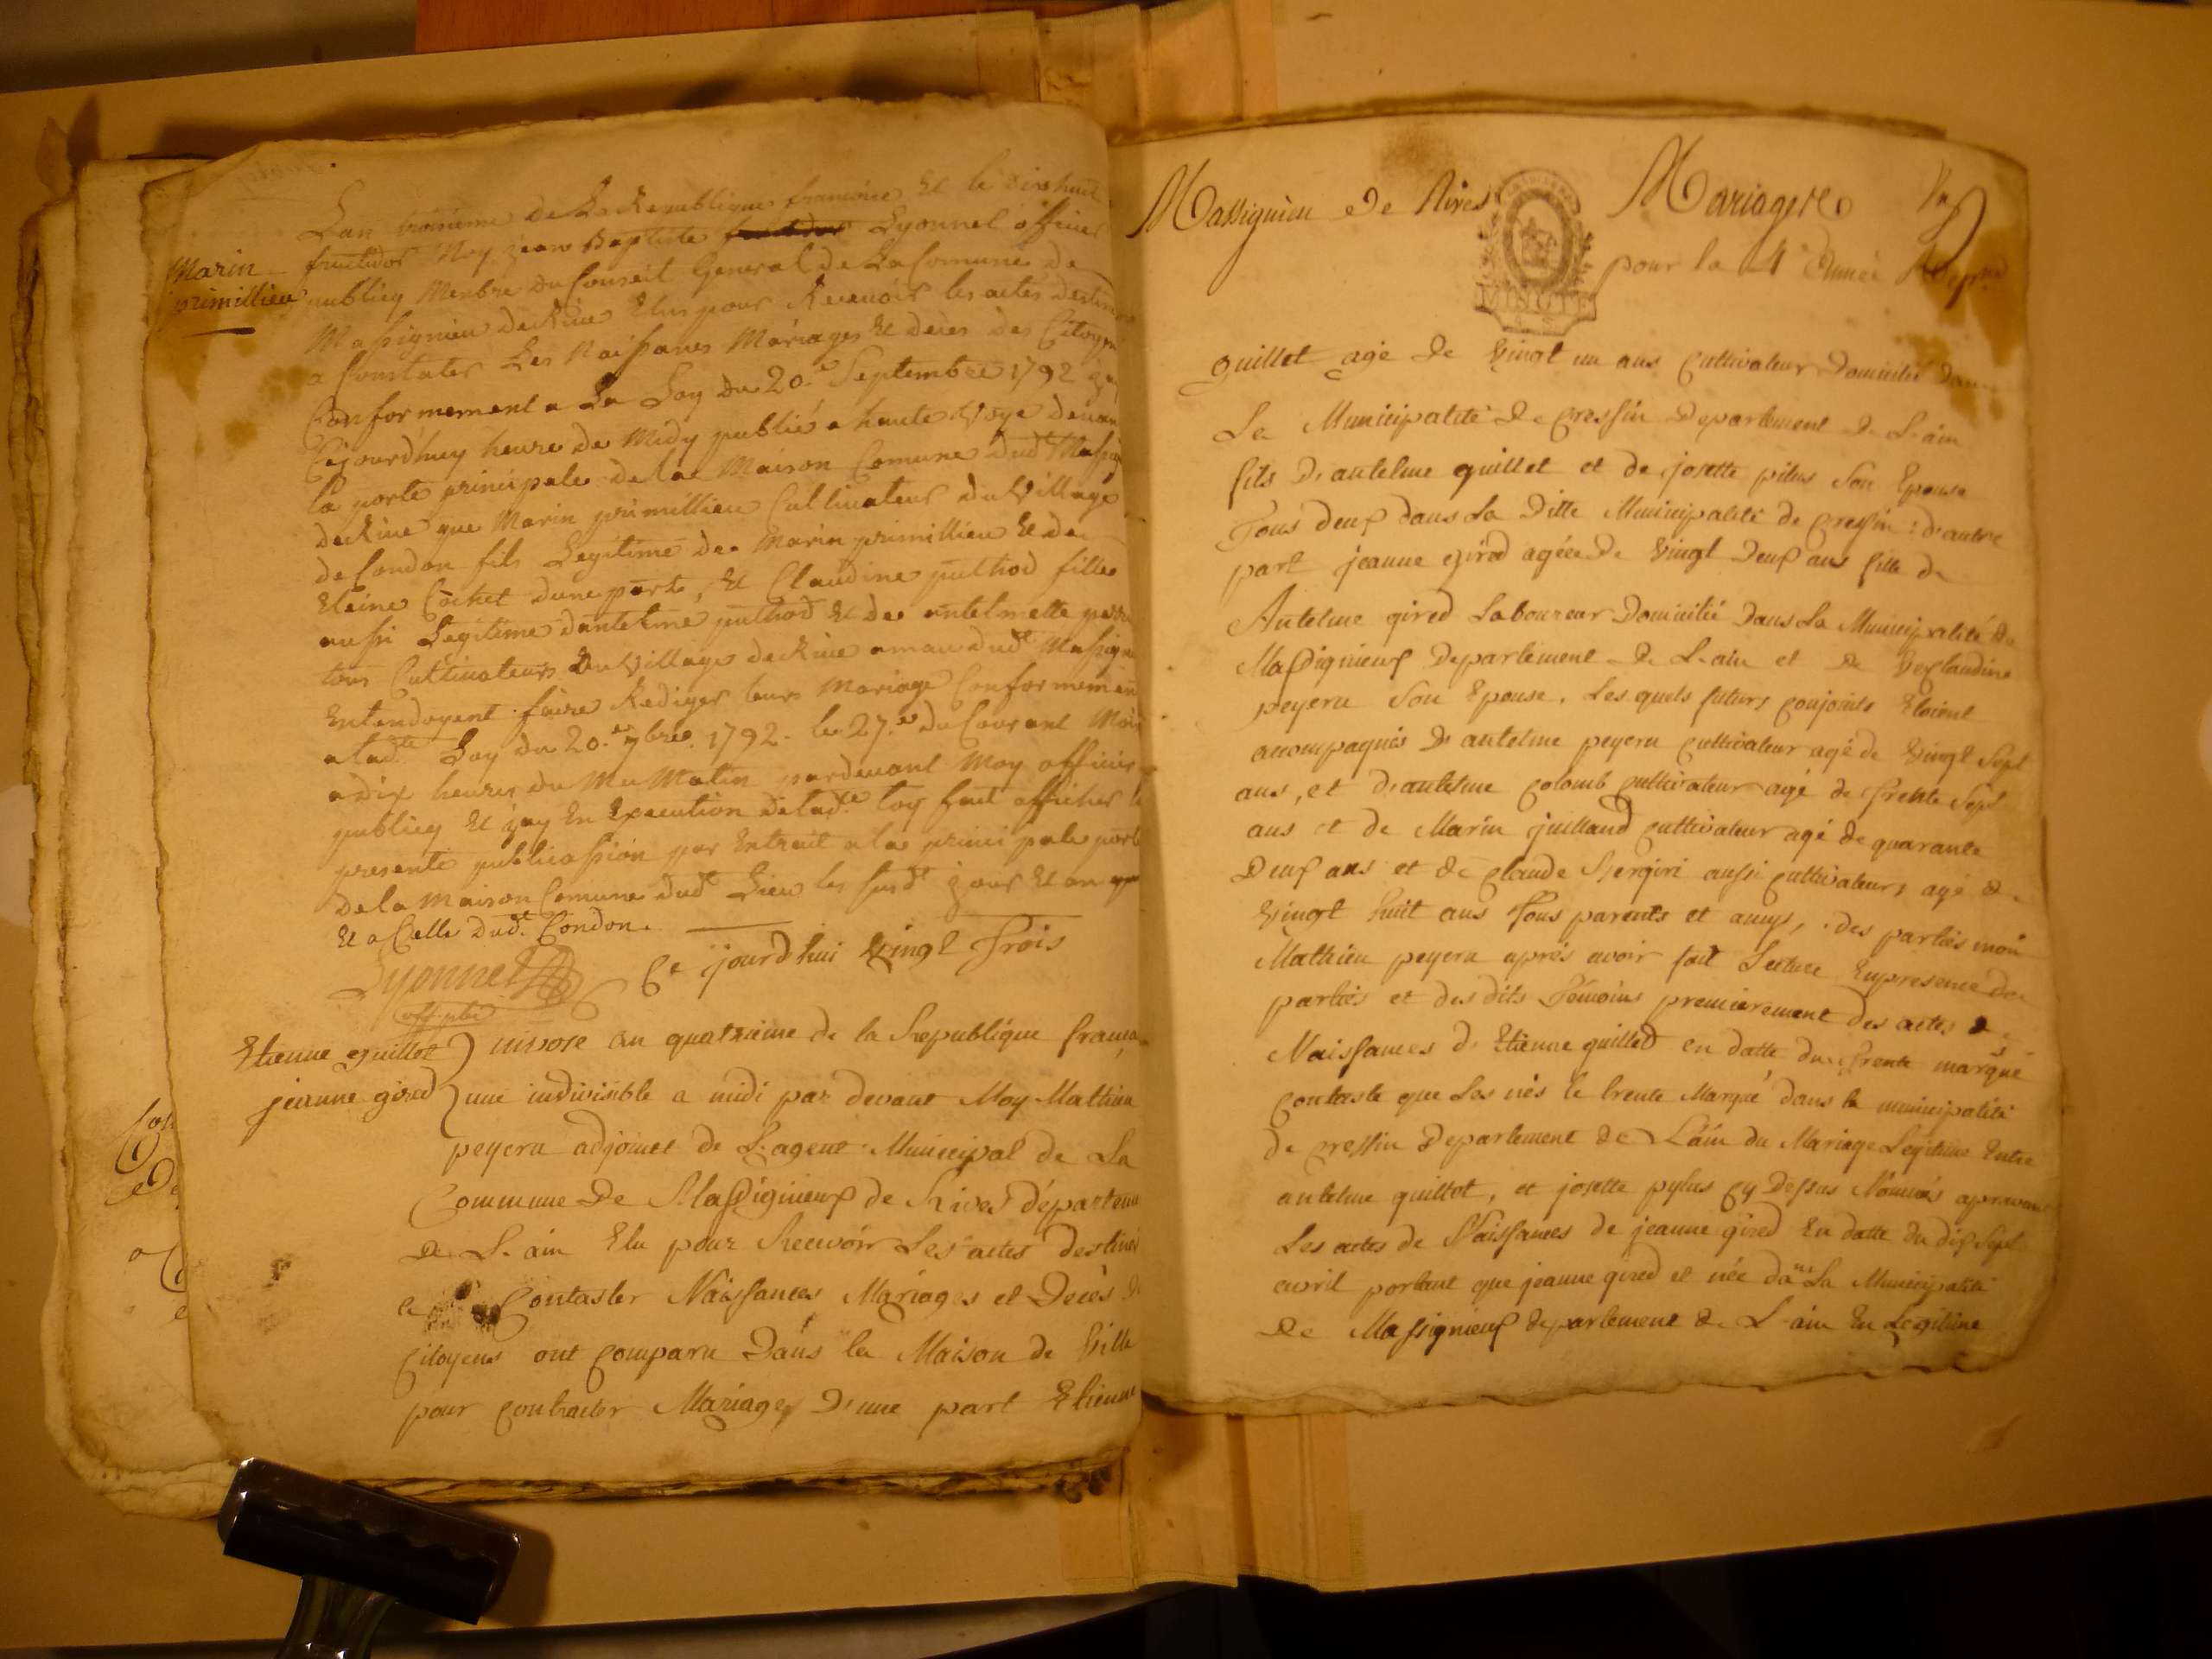 Marin
primillieu
Lan troisieme de La Republique francoise Et le dixhuit
fructidor Moy jean Baptiste Lyonnel officier
publicq Menbre du Conseil General de La Comune de
Massignieu de Rive Elus pour Recevoir les actes destinés
a Constater Les Naissances Mariages Et deces des Citoyens
Conformement a La Loy du 20.e Septembre 1792
Cejourdhuy heure de Midy publié a haute Voye devant
la porte principale de la Maison Comune dud.t Massig
de Rive que Marin primillieu Cultivateur du Village
de Condon fils Legitime de Marin primillieu Et de
Cochet dune part, Et Claudine puthod fille
aussi Legitime dantelme puthod Et de antelmette
tous Cultivateurs du Village de Rive aman dud.t Massign
Entendoyent faire Rediger leurs Mariage Conformement
a lad.te Loy du 20.e 7bre 1792. le 27.e du Courant Mois
a dix heures du Matin pardevant Moy officier
publicq Et jay En Execution de lad.te Loy fait afficher la
presente publicassion par Extrait a la principale porte
de la Maison Comune dud.t Lieu les susd.t jour Et an
Et a Celle dud.t Condon.
Lyonnel
off. plic
Ce jourdhui Vingt Trois
Etienne guillot
jeanne gired
nivose an quatrieme de la Republique frança
une indivisible a midi par devant Moy Mathieu
peyeru adjoinct de L'agent Municipal de La
Commune De Massignieux de Rives département
De L'ain Elu pour Recevoir Les actes destinés
a Contaster Naissances Mariages et Decès De
Citoyens ont Comparu Dans la Maison de Ville
pour Contracter Mariage, D'une part Etienne
Massignieu De Rives
Mariages
pour la 4e Année
guillet agé De Vingt un ans Cultivateur Domicilié Dans
La Municipalité De Cressin Departement De L'ain
fils D'antelme guillet et de josette pilus Son Epouse
Tous deux dans La Ditte Municipalité de Cressin: d'autre
part jeanne gired agéee De Vingt Deux ans fille de
Antelme gired Laboureur Domicilié Dans La Municipalité De
Massignieux Departement De L'ain et De Claudine
peyeru Son Epouse. Les quels futurs conjoints Etoient
accompagnés D'antelme peyeru Cultivateur agé de Vingt Sept
ans, et d'antelme Colomb Cultivateur agé de Trente Sept
ans et de Marin juilland Cultivateur agé de quarante
Deux ans et de Claude aussi Cultivateurs agé de
Vingt huit ans Tous parents et amys, des parties moi
Mathieu peyeru aprés avoir fait Lecture En presence des
parties et des dits Témoins premierement des actes de
Naissances d'Etienne guilled en datte du trente
Contaste que Les nés le trente dans la municipalité
de Cressin Departement de L'ain du Mariage Legitime Entre
antelme guillot, et josette pylus Cy Dessus Nommés
Les actes de Naissances de jeanne gired En datte du dix Sept
avril portant que jeanne gired et née dans La Municipalité
De Massignieux departement de L'ain En Legitime